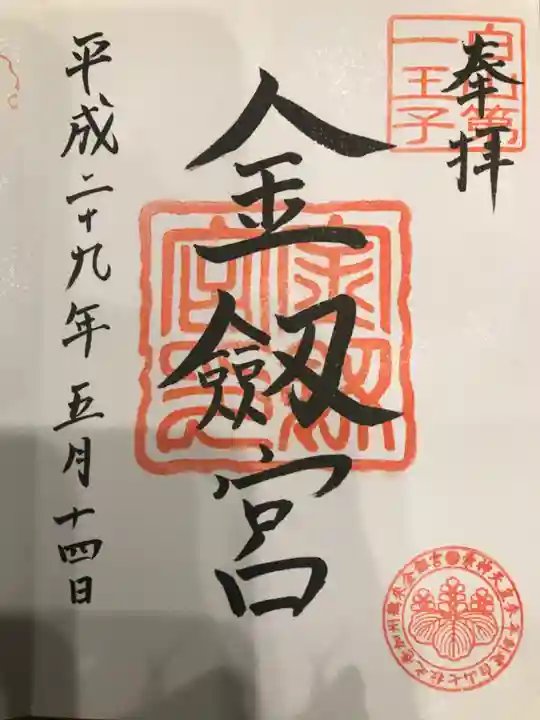 奉拝
白山第
一王子
金劔宮
金劔
宮印
平成二十九年五月十四日